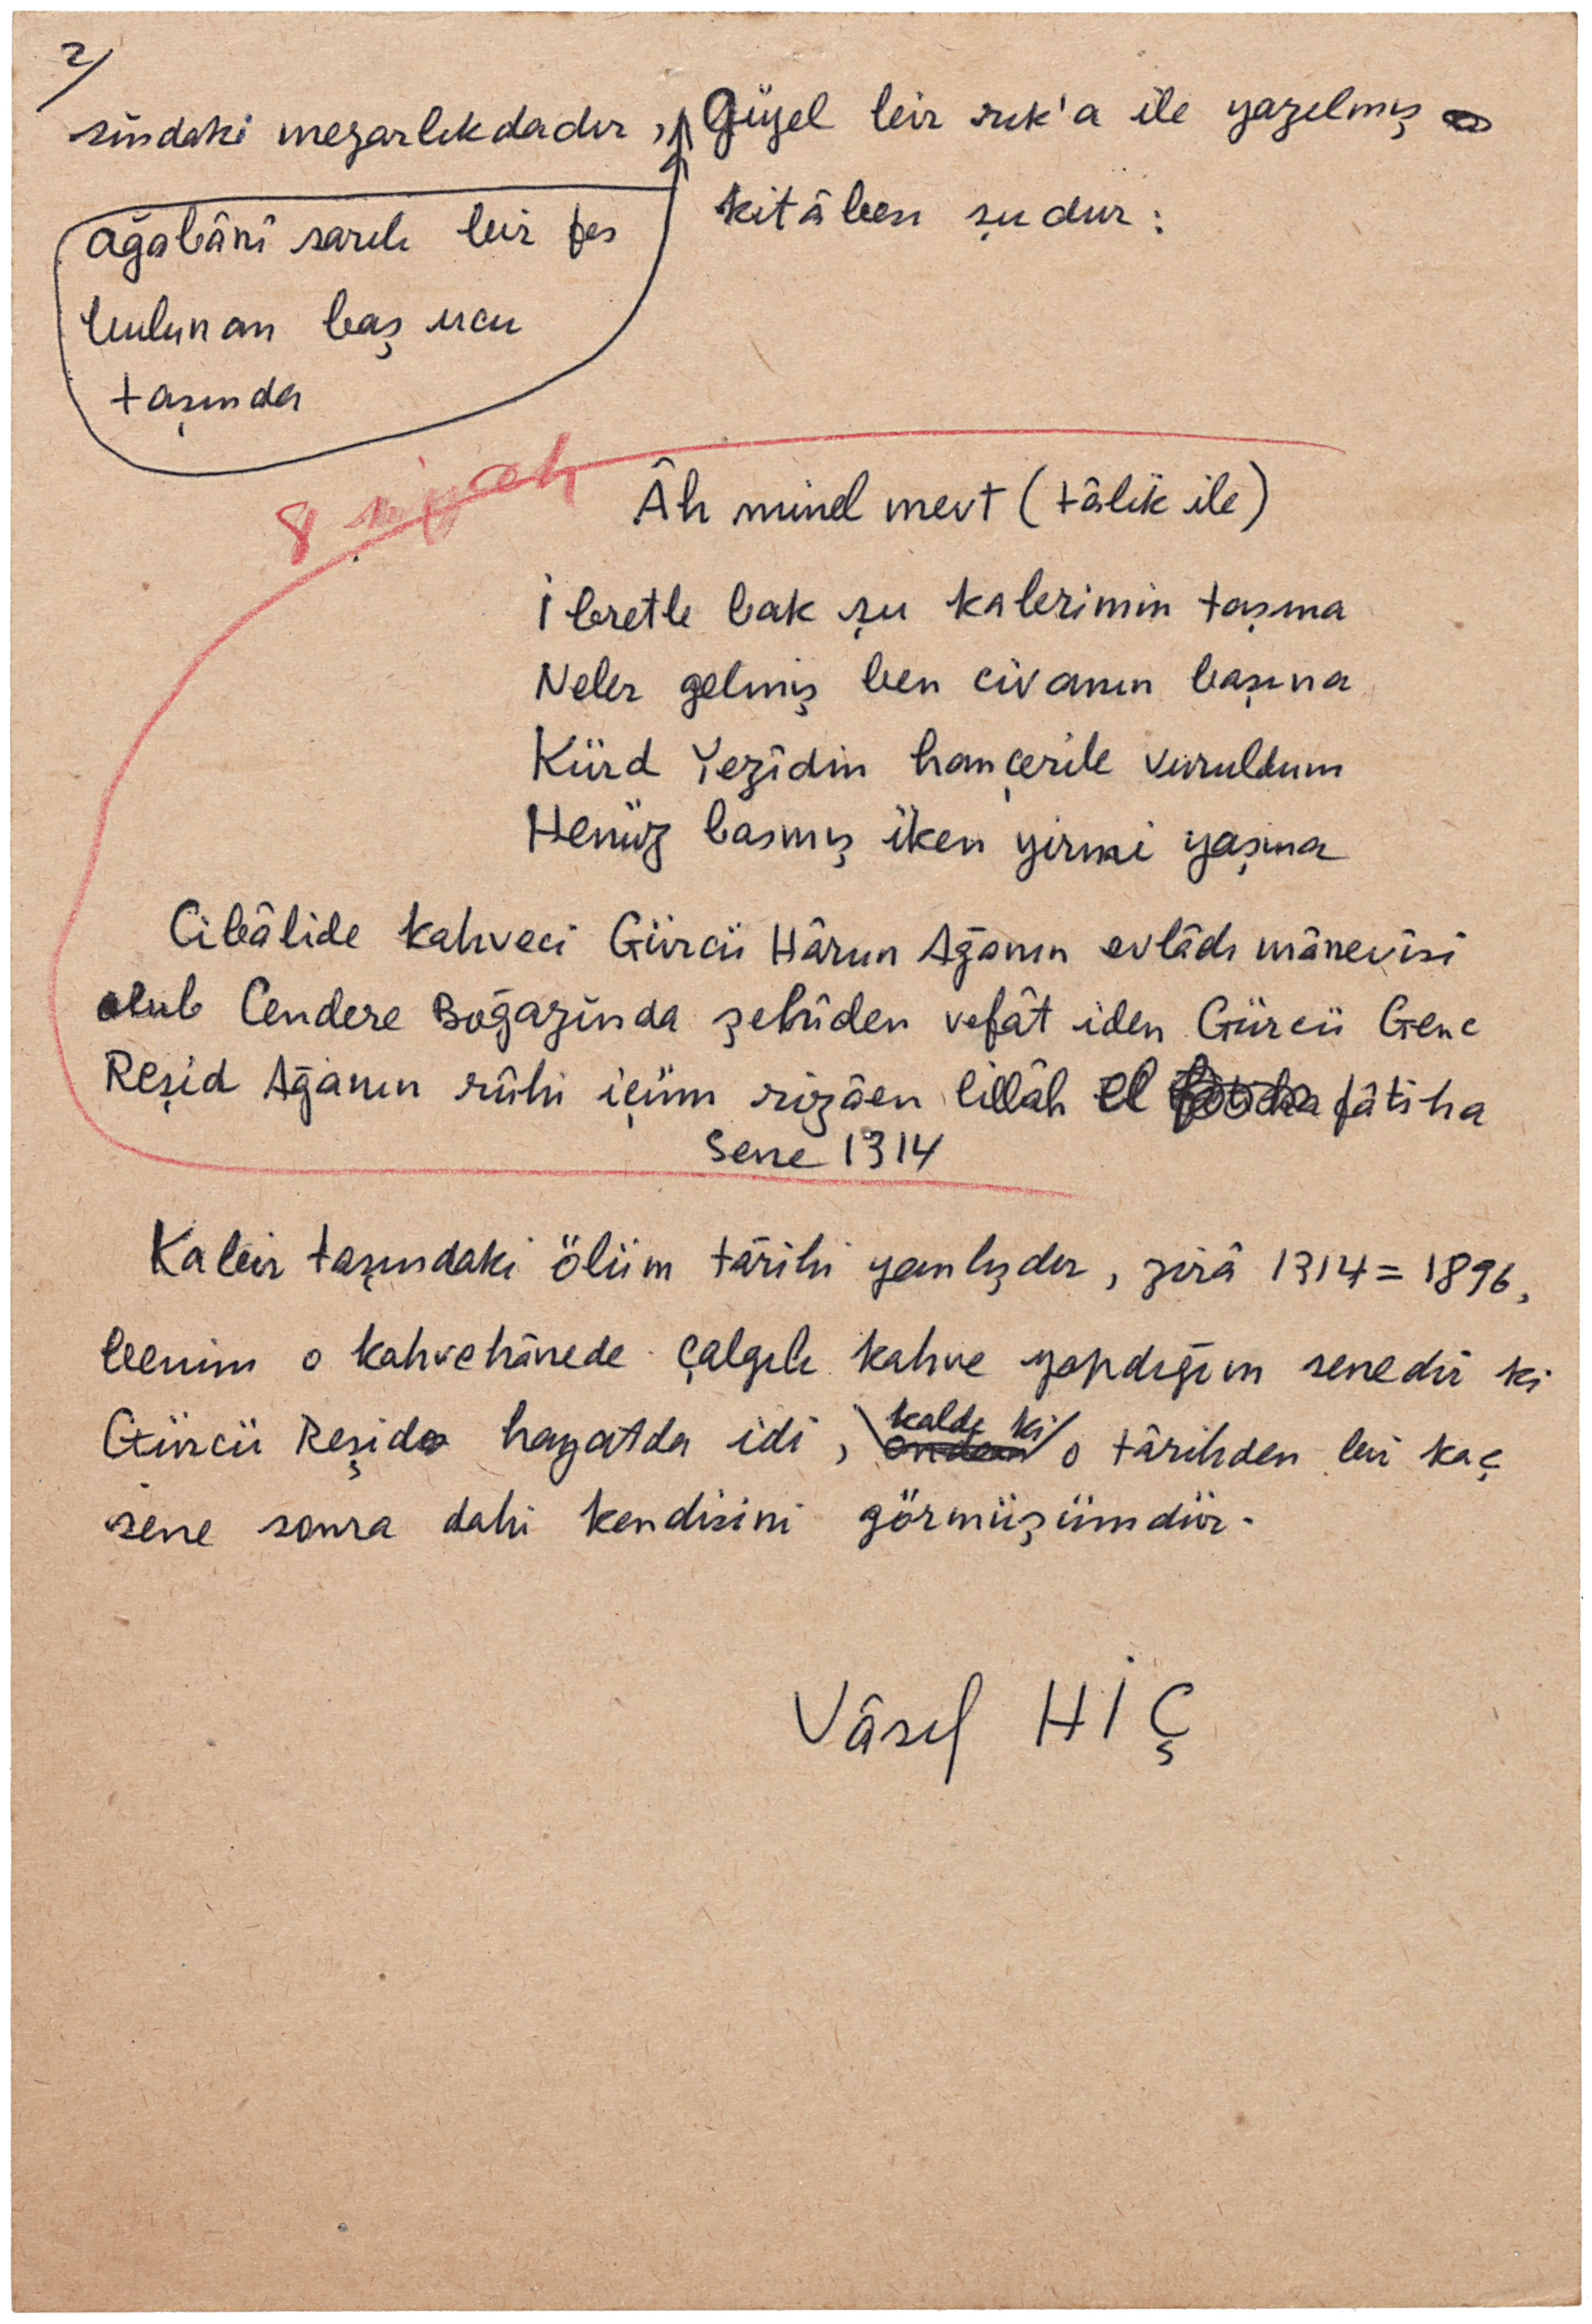 2/
sindaki mezarlıkdadır, Güzel bir rık'a ile yazılmış
kitâbesi şudur:
ağabânî sarılı bir fes
bulunan baş ucu
taşında
8 siyah
Âh minel mevt (tâlik ile)
İbretle bak şu kabrimin taşına
Neler gelmiş ben civanın başına
Kürd Yezîdin hançerile vuruldum
Henüz basmış iken yirmi yaşına
Cibâlide kahveci Gürcü Hârun Ağanın evlâdı mânevîsi
olub Cendere Boğazında şehîden vefât iden Gürcü Genc
Reşid Ağanın rûhi içün rizâen lillâh el fâtiha
Sene 1314
Kabir taşındaki ölüm târihi yanlışdır, zirâ 1314 = 1896,
benim o kahvehânede çalgılı kahve yapdığım senedir ki
Gürcü Reşid hayatda idi, kaldı ki o târihden bir kaç
sene sonra dahi kendisini görmüşümdür.
Vâsıf HİÇ